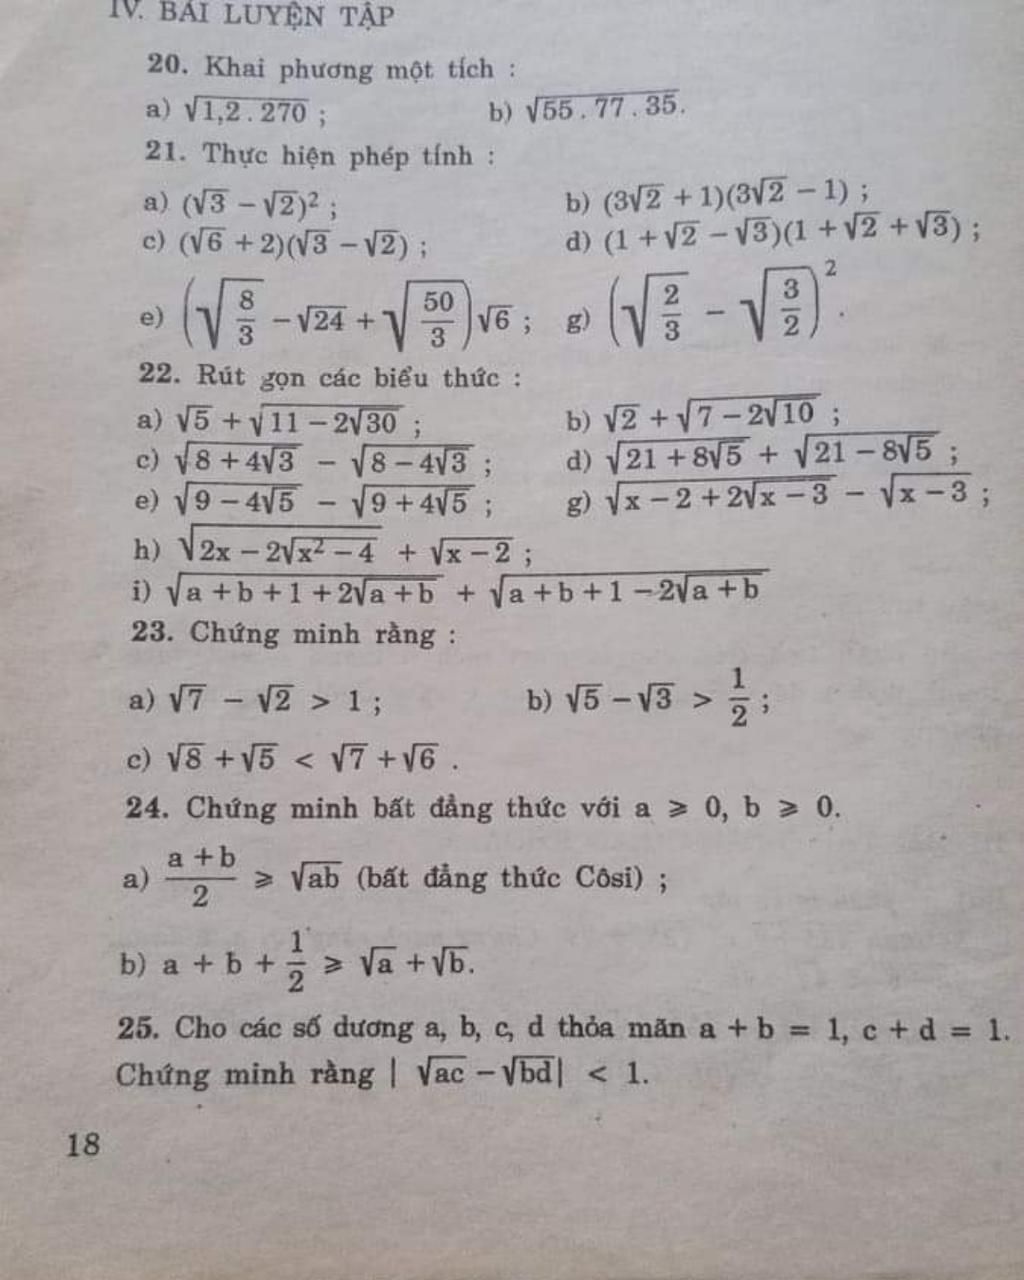 IV. BÀI LUYỆN TẬP
20. Khai phương một tích :
a) √(1,2 . 270) ; b) √(55 . 77 . 35).
21. Thực hiện phép tính :
a) (√3 − √2)² ; b) (3√2 + 1)(3√2 − 1) ;
c) (√6 + 2)(√3 − √2) ; d) (1 + √2 − √3)(1 + √2 + √3) ;
e) (√(8/3) − √24 + √(50/3))√6 ; g) (√(2/3) − √(3/2))².
22. Rút gọn các biểu thức :
a) √5 + √(11 − 2√30) ; b) √2 + √(7 − 2√10) ;
c) √(8 + 4√3) − √(8 − 4√3) ; d) √(21 + 8√5) + √(21 − 8√5) ;
e) √(9 − 4√5) − √(9 + 4√5) ; g) √(x − 2 + 2√(x − 3)) − √(x − 3) ;
h) √(2x − 2√(x² − 4)) + √(x − 2) ;
i) √(a + b + 1 + 2√(a + b)) + √(a + b + 1 − 2√(a + b))
23. Chứng minh rằng :
a) √7 − √2 > 1 ; b) √5 − √3 > 1/2 ;
c) √8 + √5 < √7 + √6 .
24. Chứng minh bất đẳng thức với a ⩾ 0, b ⩾ 0.
a) (a + b)/2 ⩾ √(ab) (bất đẳng thức Côsi) ;
b) a + b + 1/2 ⩾ √a + √b.
25. Cho các số dương a, b, c, d thỏa mãn a + b = 1, c + d = 1.
Chứng minh rằng | √(ac) − √(bd)| < 1.
18